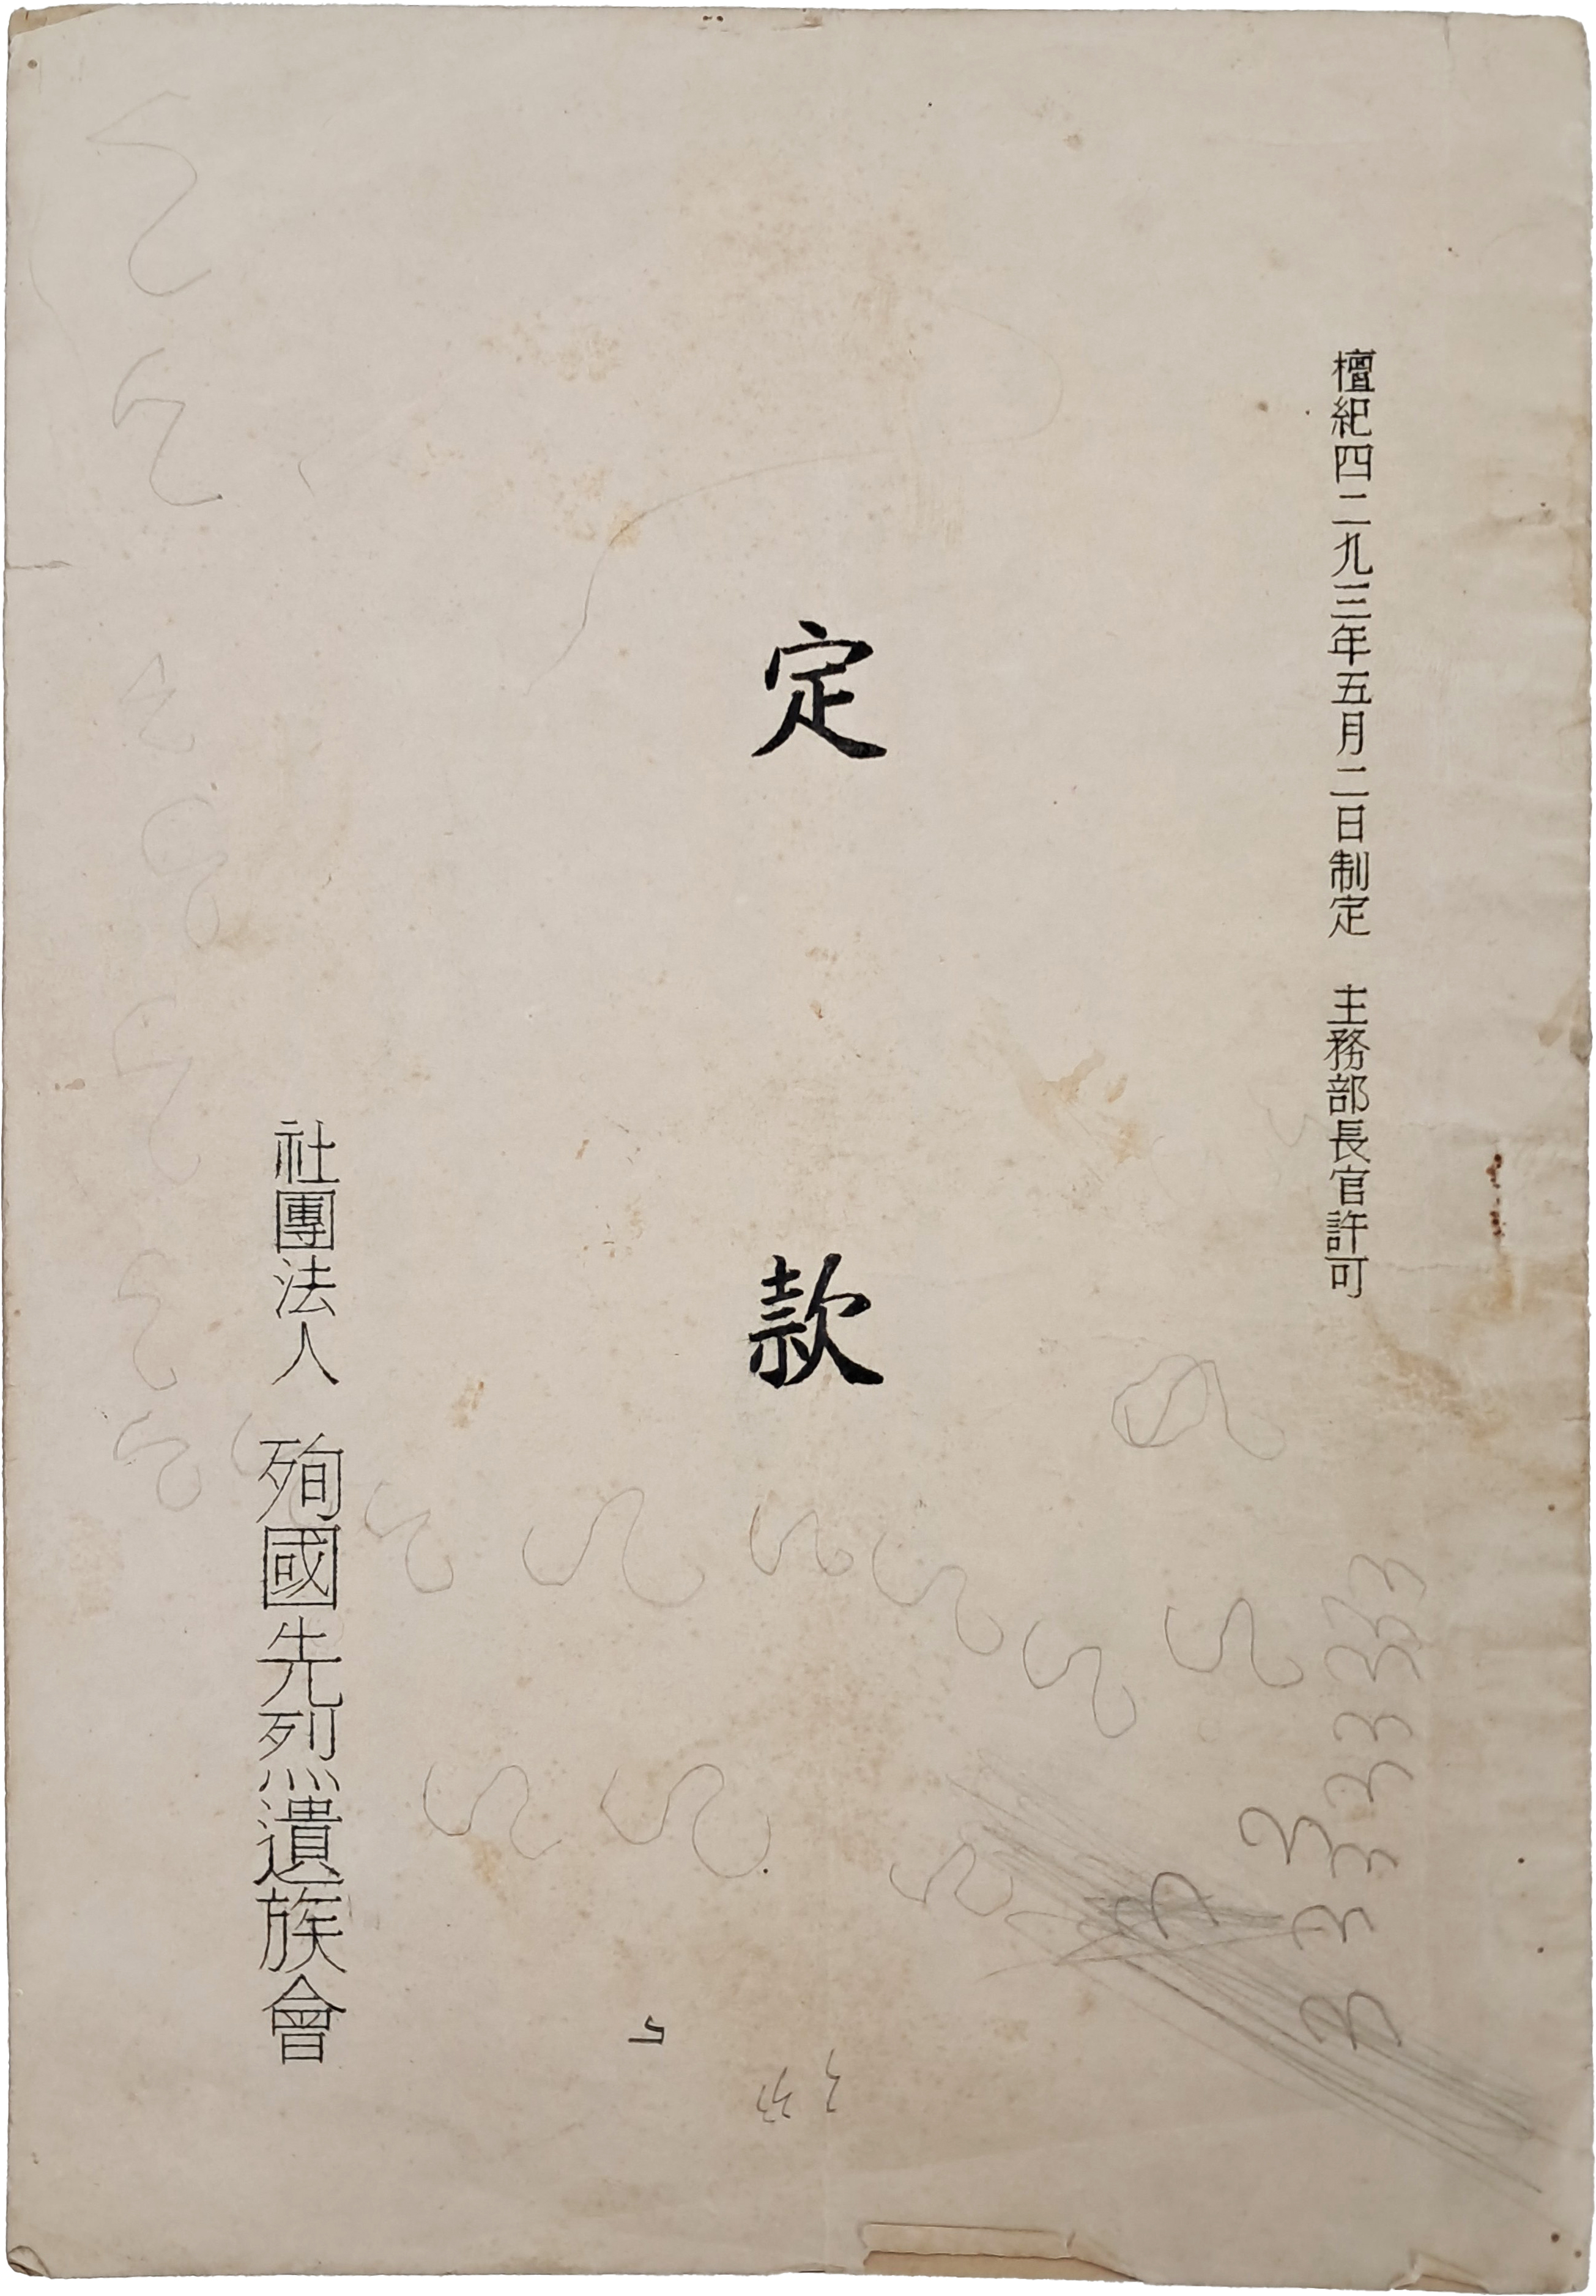 檀紀四二九三年五月二日制定　主務部長官許可
定款
社團法人　殉國先烈遺族會